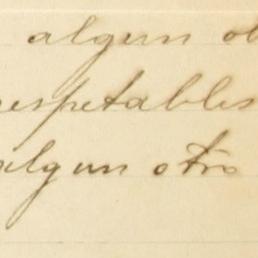 algun ob
respetables
algun otro